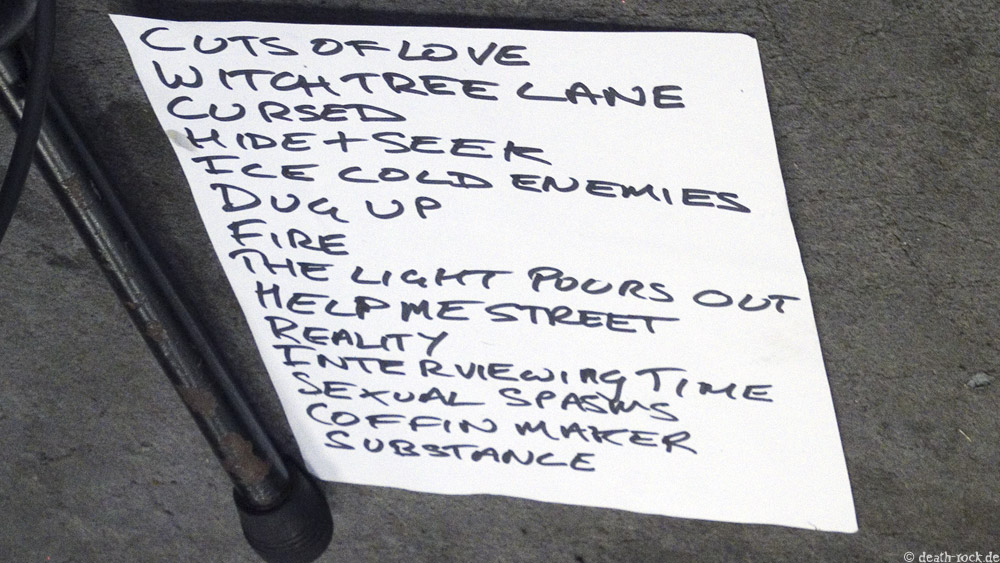 CUTS OF LOVE
WITCH TREE LANE
CURSED
HIDE + SEEK
ICE COLD ENEMIES
DUG UP
FIRE
THE LIGHT POURS OUT
HELP ME STREET
REALITY
INTERVIEWING TIME
SEXUAL SPASMS
COFFIN MAKER
SUBSTANCE
© death-rock.de